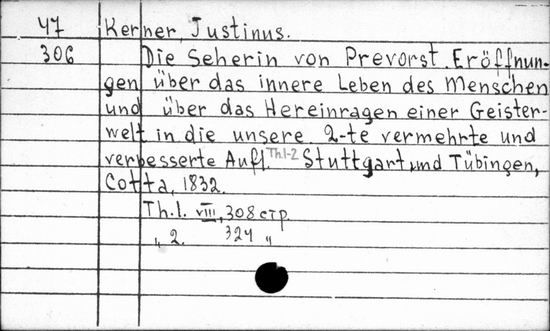 47 Kerner, Justinus.
306 Die Seherin von Prevorst. Eröffnun-
gen über das innere Leben des Menschen
und über das Hereinragen einer Geister-
welt in die unsere 2-te vermehrte und
verbesserte Aufl. Th.1-2 Stuttgart und Tübingen,
Cotta, 1832.
Th.1. VIII, 308 стр.
„ 2. 324 „